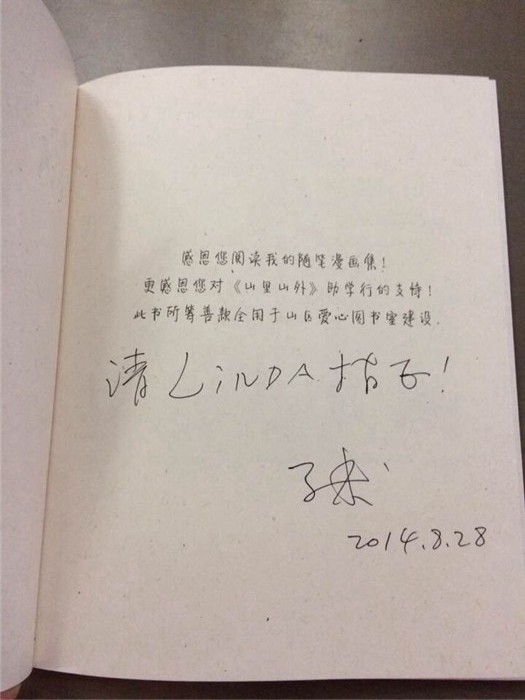 感恩您阅读我的随笔漫画集!
更感恩您对《山里山外》助学行的支持!
此书所筹善款全用于山区爱心图书室建设.
请LiNDA指正!
2014.8.28